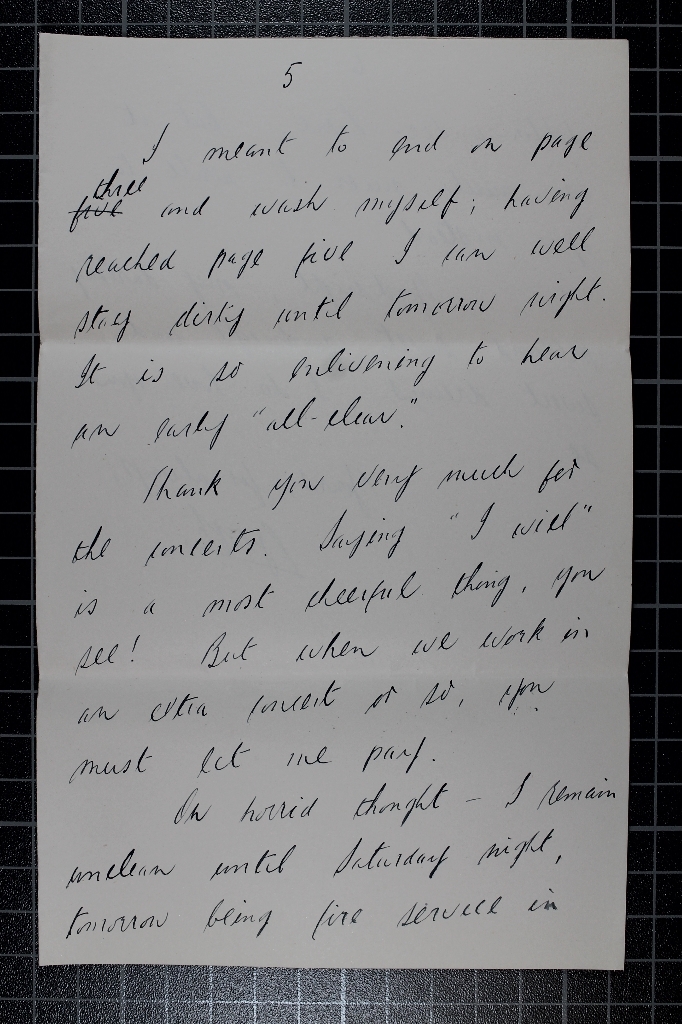 5
I meant to end on page
three
five and wash myself; having
reached page five I can well
stay dirty until tomorrow night.
It is so enlivening to hear
an early "all-clear."
Thank you very much for
the concerts. Saying "I will"
is a most cheerful thing, you
see! But when we work in
an extra concert or so, you
must let me pay.
Oh horrid thought - I remain
unclean until Saturday night,
tomorrow being fire service in